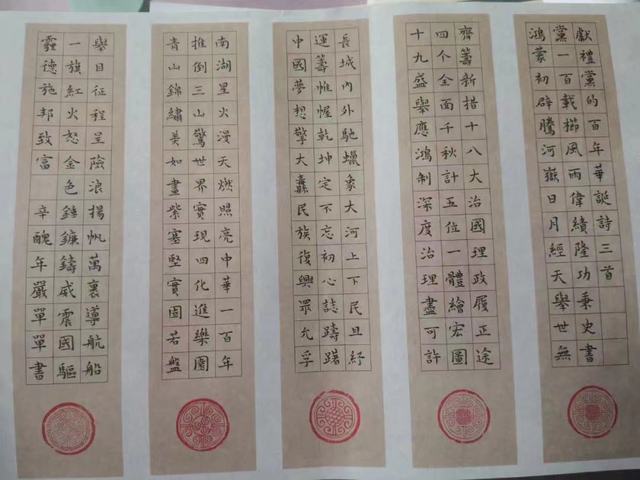 獻禮黨的百年華誕詩三首
黨一百載櫛風雨偉績隆功秉史書
鴻蒙初辟騰河嶽日月經天舉世無
齊籌新措十八大治國理政履正途
四个全面千秋計五位一體繪宏圖
十九盛舉應鴻制深度治理盡可許
長城內外馳蠟象大河上下民旦紓
運籌帷幄乾坤定不忘初心誌躊躇
中國夢想擎大纛民族復興眾允孚
南湖星火漫天燃照亮中華一百年
推倒三山驚世界實現四化進樂園
青山錦繡美如畫紫塞堅實固若盤
舉目征程呈險浪揚帆萬裏導航船
一旗紅火怒金色錘鐮鑄威震國驅
霾德施邦致富 辛醜年嚴單單書